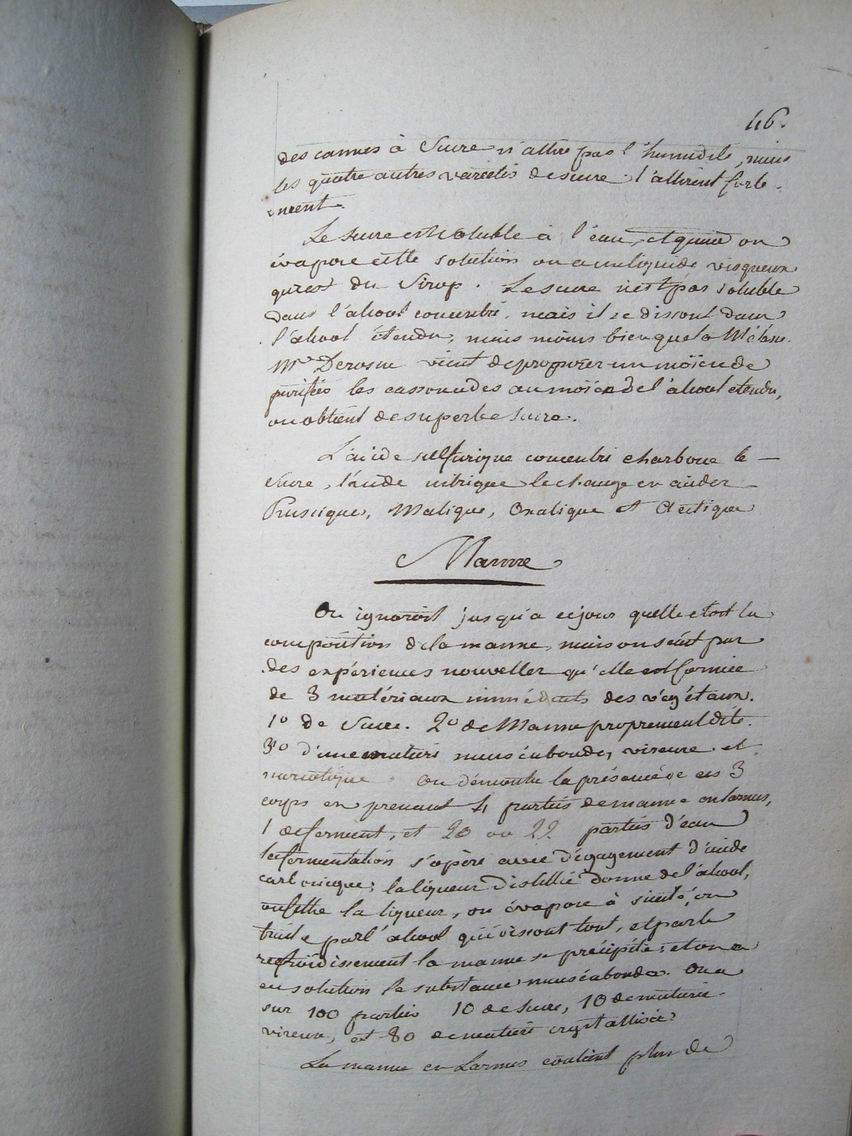 46.
des cannes à Sucre n'attire pas l'humidité, mais
les quatre autres variétés de sucre l'attirent forte-
ment.
Le sucre est soluble à l'eau, et quand on
évapore cette solution on a un liquide visqueux
qui est du Sirop. Le sucre n'est pas soluble
dans l'alcool concentré, mais il se dissout dans
l'alcool étendu, mais moins bien que la Mélasse.
Mr Derosne vient de proposer un moïen de
purifier les cassonades au moïen de l'alcool etendu,
on obtient de superbe sucre.
L'acide sulfurique concentré charbone le
Sucre, l'acide nitrique le change en acides
Prussique, Malique, Oxalique et Acétique
Manne
On ignoroit jusqu'a ce jour quelle etoit la
composition de la manne, mais on sçait par
des expériences nouvelles qu'elle est formée
de 3 matériaux immédiats des végétaux.
1o de Sucre. 2o de Manne proprement dite.
3o d'une matière nauséabonde, vireuse et
On démontre la présence de ces 3
corps en prenant 4 parties de manne en larmes,
1 de ferment, et 20 ou 22 parties d'eau
la fermentation s'opère avec dégagement d'acide
carbonique; la liqueur distillée donne de l'alcool,
on filtre la liqueur, on évapore à siccité, on
traite par l'alcool qui dissout tout, et par le
refroidissement la manne se précipite; et on a
en solution la substance nauséabonde. On a
sur 100 parties 10 de sucre, 10 de matière
vireuse, et 80 de matière crystallisée.
La manne en Larmes contient plus de